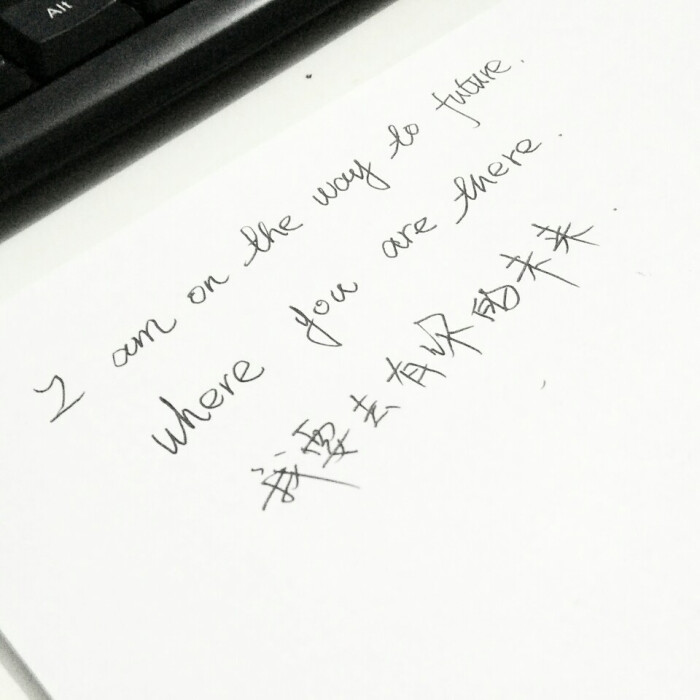 Alt
I am on the way to future.
where you are there.
我要去有你的未来.